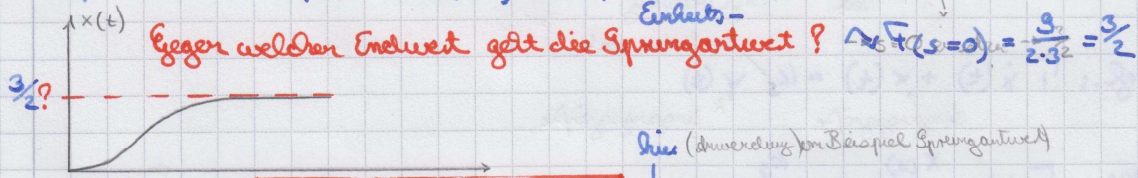 Einheits-
x(t) Gegen welchen Endwert geht die Sprungantwort ? ⤳ F(s=0) = 9/2·3² = 3/2
3/2?
hier (Anwendung) am Beispiel Sprungantwort)